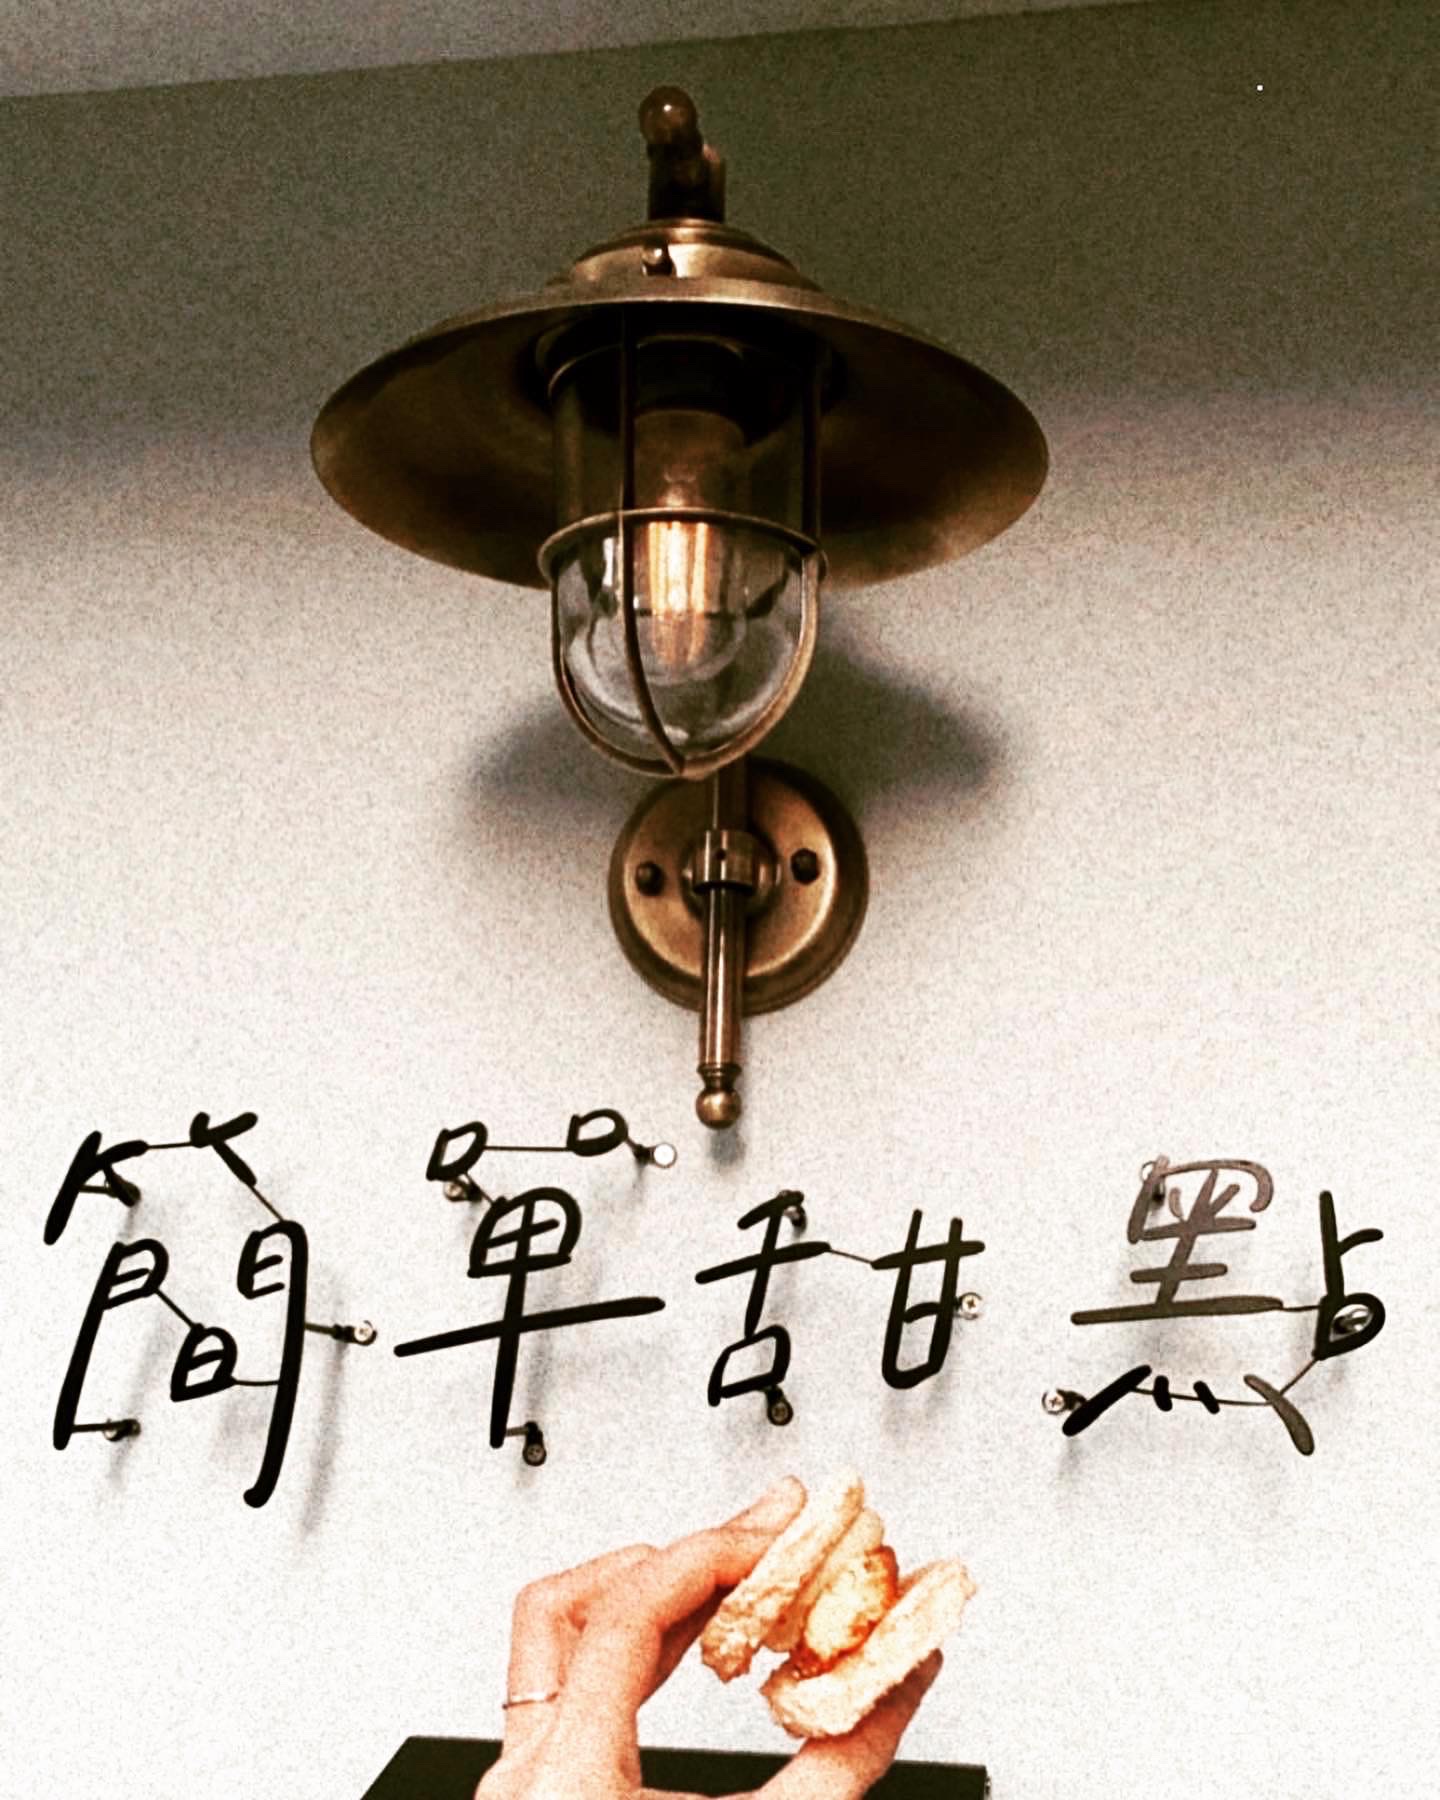 簡單甜點